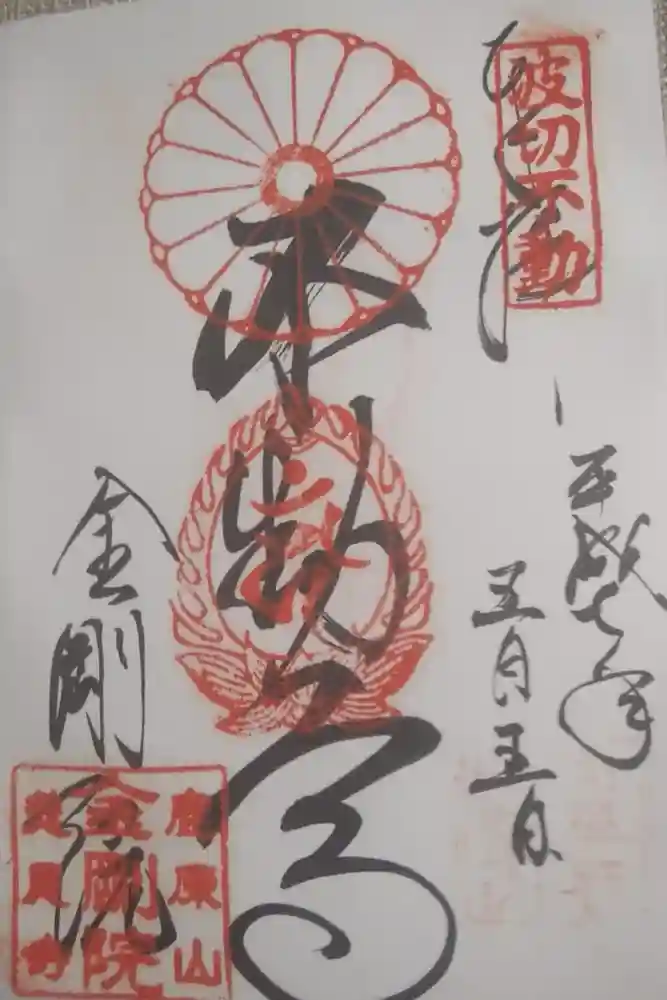 奉拝
波切不動
平成七年
五月五日
不動尊
金剛院
鹿原山
金剛院
慈恩寺